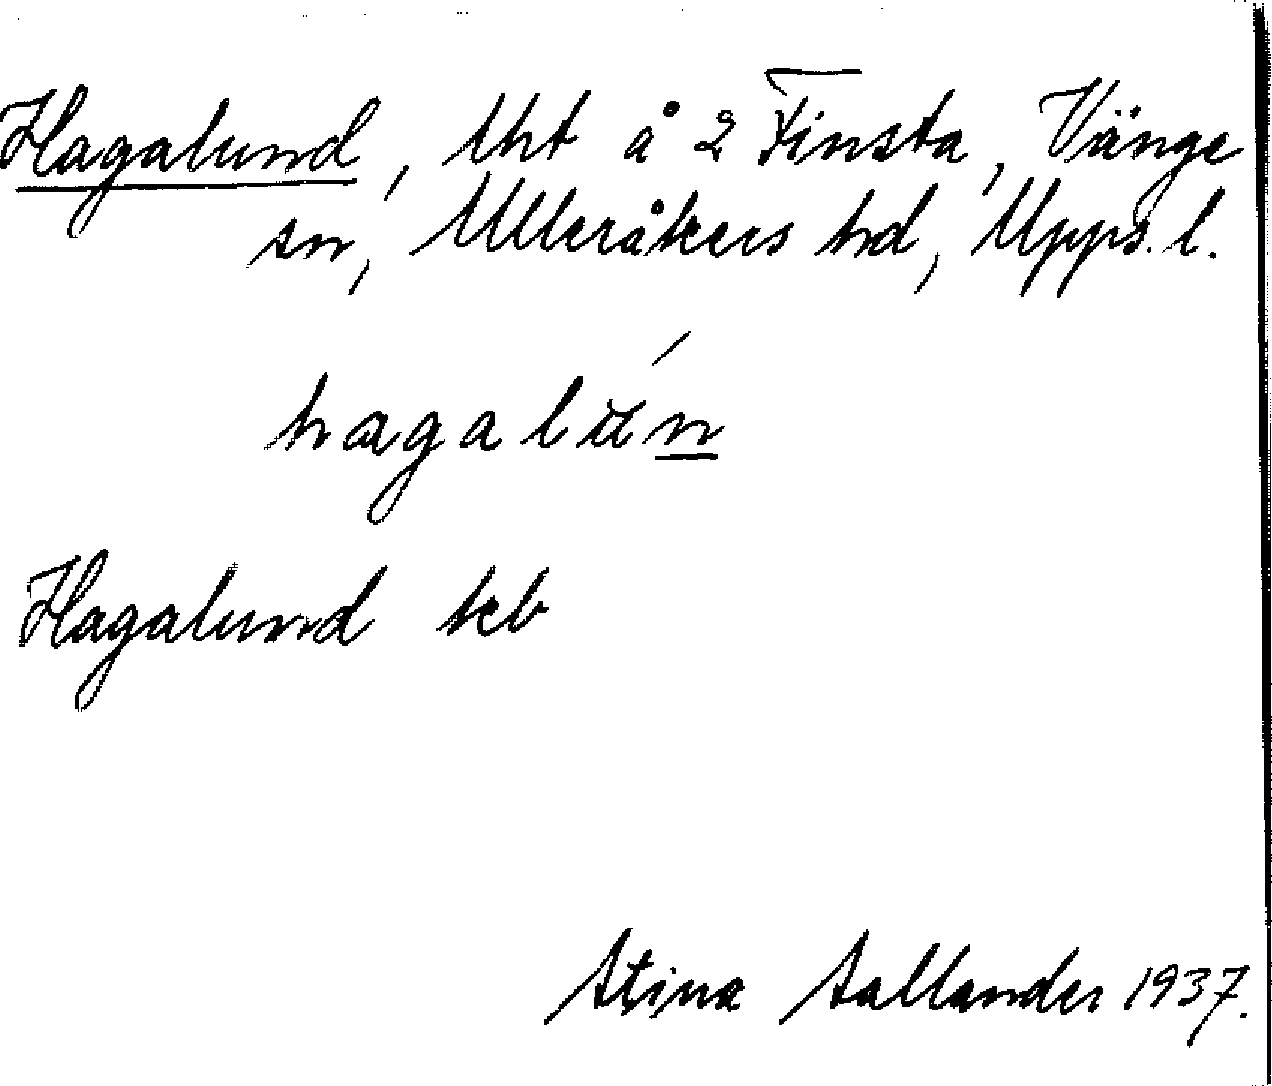 Hagalund, lht å 2 Finsta, Vänge
sn, Ulleråkers hd, Upps. l.
hagalún
Hagalund kb
Stina Sallander 1937.